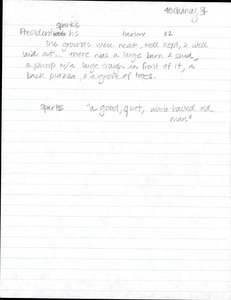 Sparks
President his harlow 32
The grounds were neat, well kept, & well
laid out... there was a large barn & shed,
a pump w/a large trough in front of it, a
back piazza, & a grove of trees.
Sparks "a good, quiet, white haired old
man"